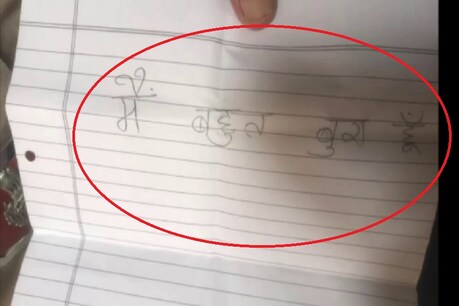 मैं बहुत बुरा हूँ